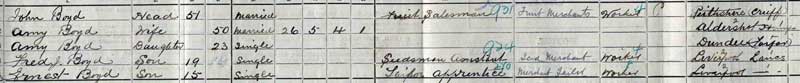 John Boyd Head 51 Married Fruit Salesman 931 Fruit Merchants Worker Perthshire Crieff
Amy Boyd Wife 50 Married 26 5 4 1 Aldershot
Amy Boyd Daughter 23 Single Dundee Forfar
Fred J. Boyd Son 19 Single Seedsman Assistant 934 Seed Merchants Worker Liverpool Lancs
Ernest Boyd Son 15 Single Tailor Apprentice Merchant Tailor Worker Liverpool